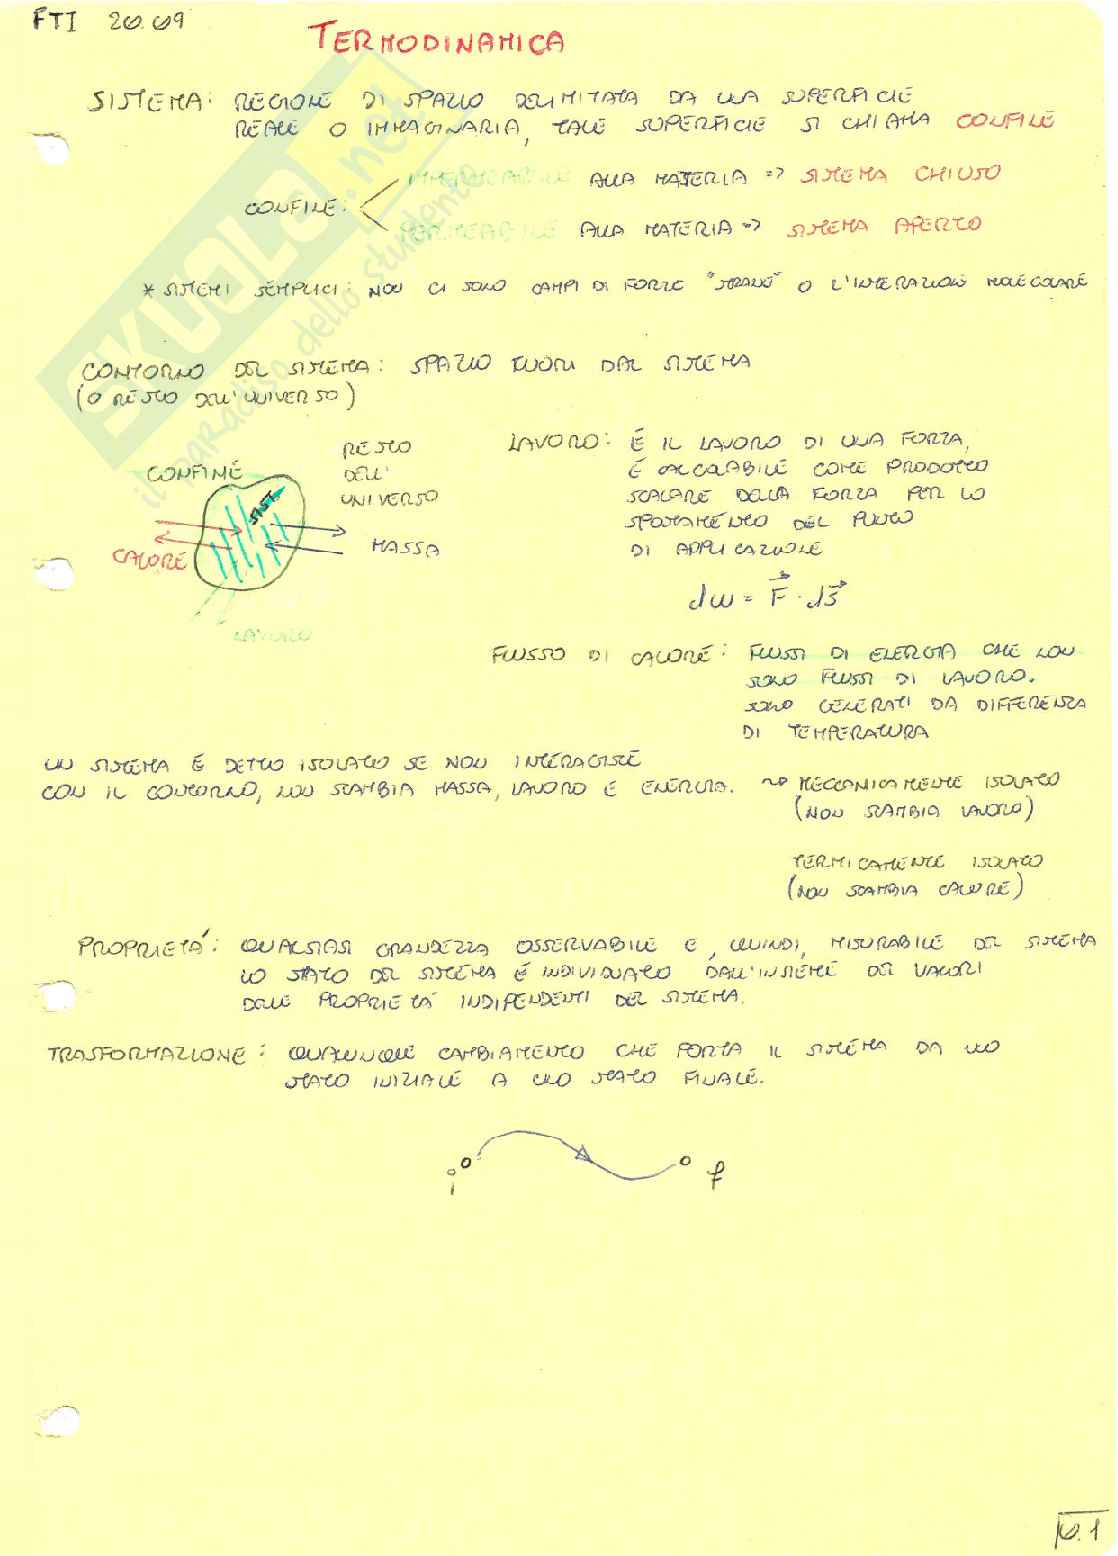 FTI 20.09
TERMODINAMICA
SISTEMA: REGIONE DI SPAZIO DELIMITATA DA UNA SUPERFICIE
REALE O IMMAGINARIA, TALE SUPERFICIE SI CHIAMA CONFINE
IMPERMEABILE ALLA MATERIA => SISTEMA CHIUSO
CONFINE:
PERMEABILE ALLA MATERIA => SISTEMA APERTO
* SISTEMI SEMPLICI: NON CI SONO CAMPI DI FORZE "STRANE" O L'INTERAZIONE MOLECOLARE
CONTORNO DEL SISTEMA: SPAZIO FUORI DAL SISTEMA
(O RESTO DELL'UNIVERSO)
CONFINE
RESTO
DELL'
UNIVERSO
SIST.
CALORE
MASSA
LAVORO
LAVORO: È IL LAVORO DI UNA FORZA,
È CALCOLABILE COME PRODOTTO
SCALARE DELLA FORZA PER LO
SPOSTAMENTO DEL PUNTO
DI APPLICAZIONE
dw = F · ds
FLUSSO DI CALORE: FLUSSI DI ENERGIA CHE NON
SONO FLUSSI DI LAVORO.
SONO GENERATI DA DIFFERENZA
DI TEMPERATURA
UN SISTEMA È DETTO ISOLATO SE NON INTERAGISCE
CON IL CONTORNO, NON SCAMBIA MASSA, LAVORO E ENERGIA. ~> MECCANICAMENTE ISOLATO
(NON SCAMBIA LAVORO)
TERMICAMENTE ISOLATO
(NON SCAMBIA CALORE)
PROPRIETÀ: QUALSIASI GRANDEZZA OSSERVABILE E, QUINDI, MISURABILE DEL SISTEMA
LO STATO DEL SISTEMA È INDIVIDUATO DALL'INSIEME DEI VALORI
DELLE PROPRIETÀ INDIPENDENTI DEL SISTEMA.
TRASFORMAZIONE: QUALUNQUE CAMBIAMENTO CHE PORTA IL SISTEMA DA UNO
STATO INIZIALE A UNO STATO FINALE.
i f
SKUOLA.net
il paradiso dello studente